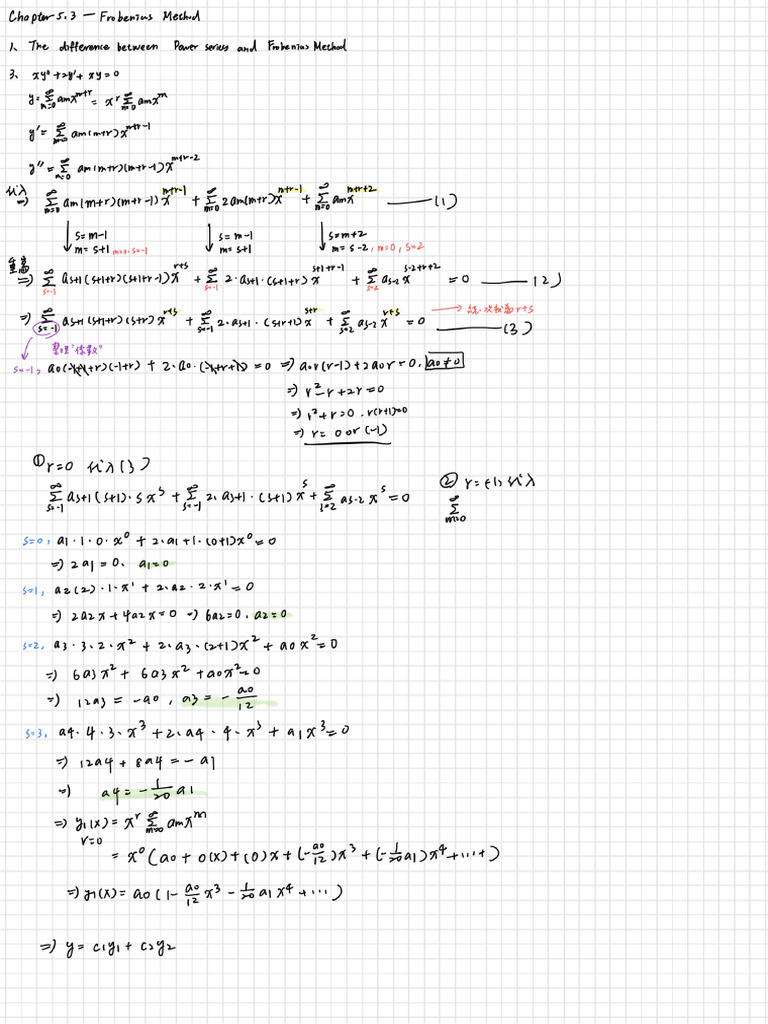 Chapter 5.3 — Frobenius Method
1、 The difference between Power series and Frobenius Method
3、 xy''+2y'+xy=0
y=∑_{m=0}^{∞} amx^{m+r} = x^r ∑_{m=0}^{∞} amx^m
y'=∑_{m=0}^{∞} am(m+r)x^{m+r-1}
y''=∑_{m=0}^{∞} am(m+r)(m+r-1)x^{m+r-2}
代入
=> ∑_{m=0}^{∞} am(m+r)(m+r-1)x^{m+r-1} + ∑_{m=0}^{∞} 2am(m+r)x^{m+r-1} + ∑_{m=0}^{∞} amx^{m+r+2} —— (1)
↓ s=m-1 ↓ s=m-1 ↓ s=m+2
m=s+1 m=0, s=-1 m=s+1 m=s-2, m=0, s=2
=> ∑_{s=-1}^{∞} as+1(s+1+r)(s+1+r-1)x^{r+s} + ∑_{s=-1}^{∞} 2·as+1·(s+1+r)x^{s+1+r-1} + ∑_{s=2}^{∞} as-2x^{s-2+r+2} = 0 —— (2)
=> ∑_{s=-1}^{∞} as+1(s+1+r)(s+r)x^{r+s} + ∑_{s=-1}^{∞} 2·as+1·(s+r+1)x^{s+r} + ∑_{s=2}^{∞} as-2x^{r+s} = 0 —— (3) → 統一次數為r+s
整理"係數"
s=-1, a0(-1+1+r)(-1+r) + 2·a0·(-1+r+1) = 0 => a0r(r-1)+2a0r=0, a0≠0
=> r²-r+2r=0
=> r²+r=0, r(r+1)=0
=> r=0 or (-1)
① r=0 代入(3)
∑_{s=-1}^{∞} as+1(s+1)·s x^s + ∑_{s=-1}^{∞} 2·as+1·(s+1)x^s + ∑_{s=2}^{∞} as-2x^s=0
② r=(-1) 代入
∑_{m=0}^{∞}
s=0, a1·1·0·x^0 + 2·a1+1·(0+1)x^0=0
=> 2a1=0, a1=0
s=1, a2(2)·1·x^1 + 2·a2·2·x^1=0
=> 2a2x+4a2x=0 => 6a2=0, a2=0
s=2, a3·3·2·x²+2·a3·(2+1)x²+a0x²=0
=> 6a3x²+6a3x²+a0x²=0
=> 12a3=-a0, a3=-a0/12
s=3, a4·4·3·x³+2·a4·4·x³+a1x³=0
=> 12a4+8a4=-a1
=> a4=-1/20 a1
=> y1(x)=x^r ∑_{m=0}^{∞} amx^m
r=0
=x^0(a0+0(x)+(0)x+(-a0/12)x³+(-1/20a1)x⁴+...+)
=> y1(x)=a0(1-a0/12 x³-1/20 a1x⁴+...)
=> y=c1y1+c2y2